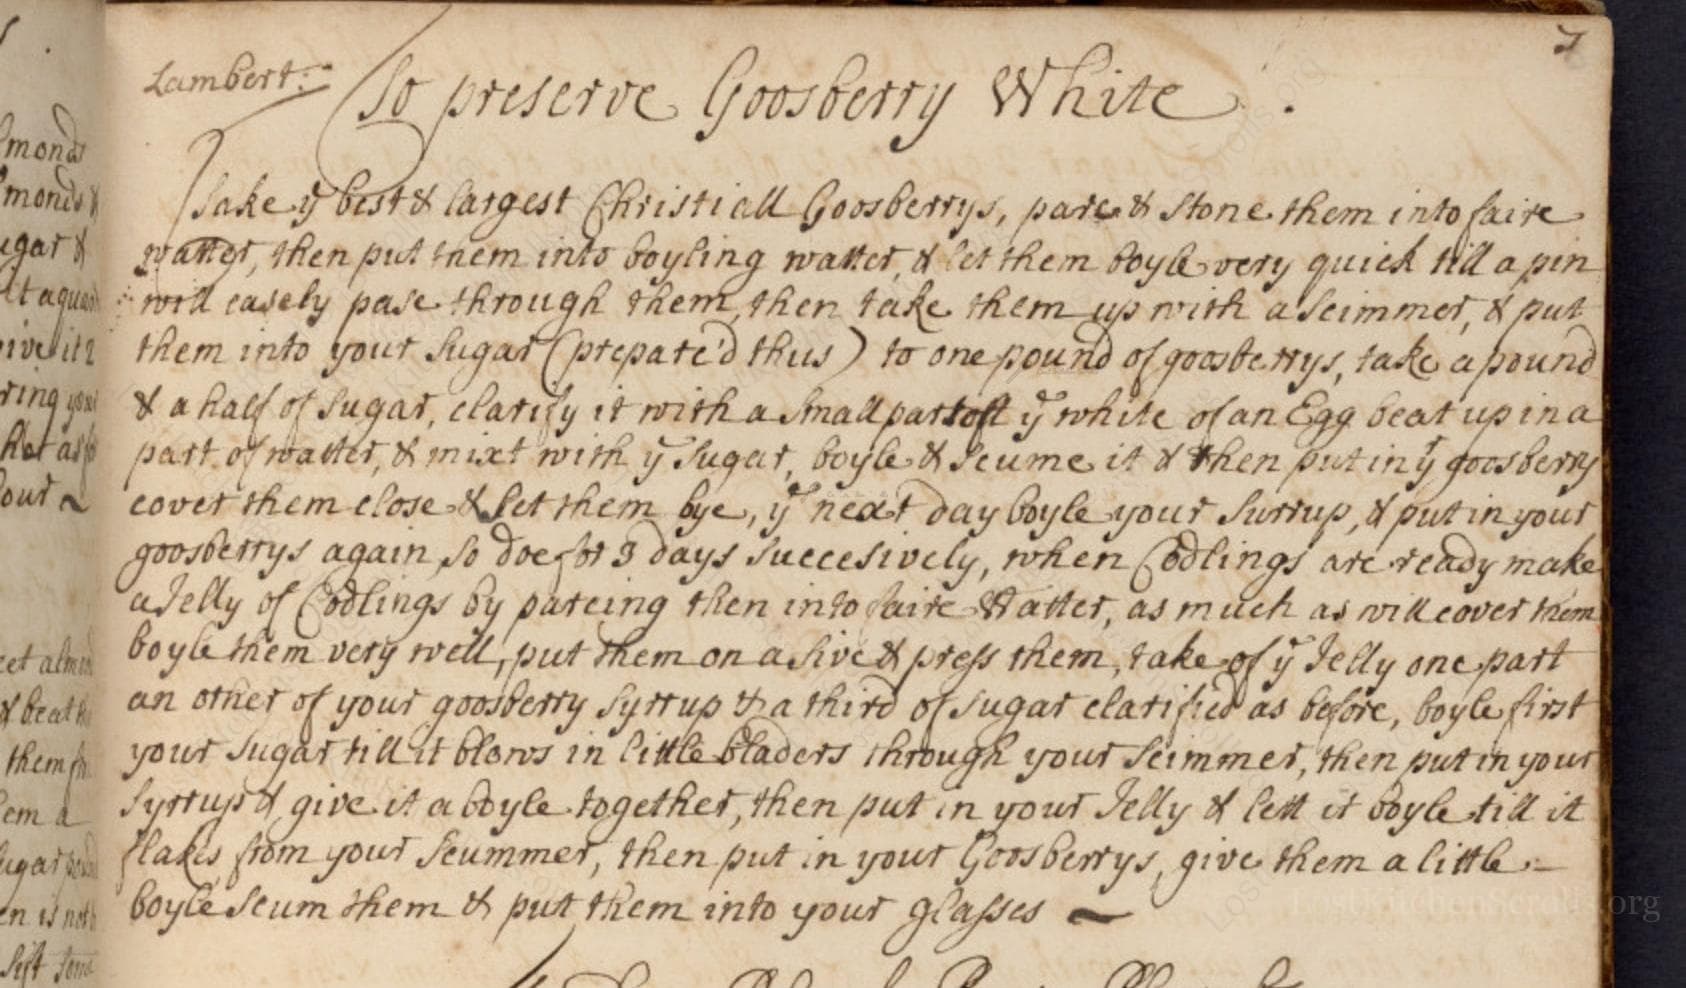 7
Lambert:
To preserve Goosberry White.
Take yͤ best & largest Christiall Goosberrys, pare & stone them into faire
watter, then put them into boyling watter, & let them boyle very quick till a pin
will easely pase through them, then take them up with a scimmer, & put
them into your sugar (prepare'd thus) to one pound of goosberrys, take a pound
& a half of sugar, clarify it with a small part of yͤ white of an Egg beat up in a
part of watter, & mixt with yͤ sugar, boyle & scume it & then put in yͤ goosberry
cover them close & let them bye, yͤ next day boyle your surrup, & put in your
goosberrys again, so doe for 3 days succesively, when Codlings are ready make
a Jelly of Codlings by pareing then into faire Watter, as much as will cover them
boyle them very well, put them on a sive & press them, take of yͤ Jelly one part
an other of your goosberry syrrup & a third of sugar clarified as before, boyle first
your sugar till it blows in little bladers through your scimmer, then put in your
syrrup & give it a boyle together, then put in your Jelly & lett it boyle till it
flakes from your scummer, then put in your Goosberrys, give them a little
boyle scum them & put them into your glasses
monds
monds &
ugar &
it 2
ring your
our
beat
them
em a
ugar
LostKitchenScrolls.org